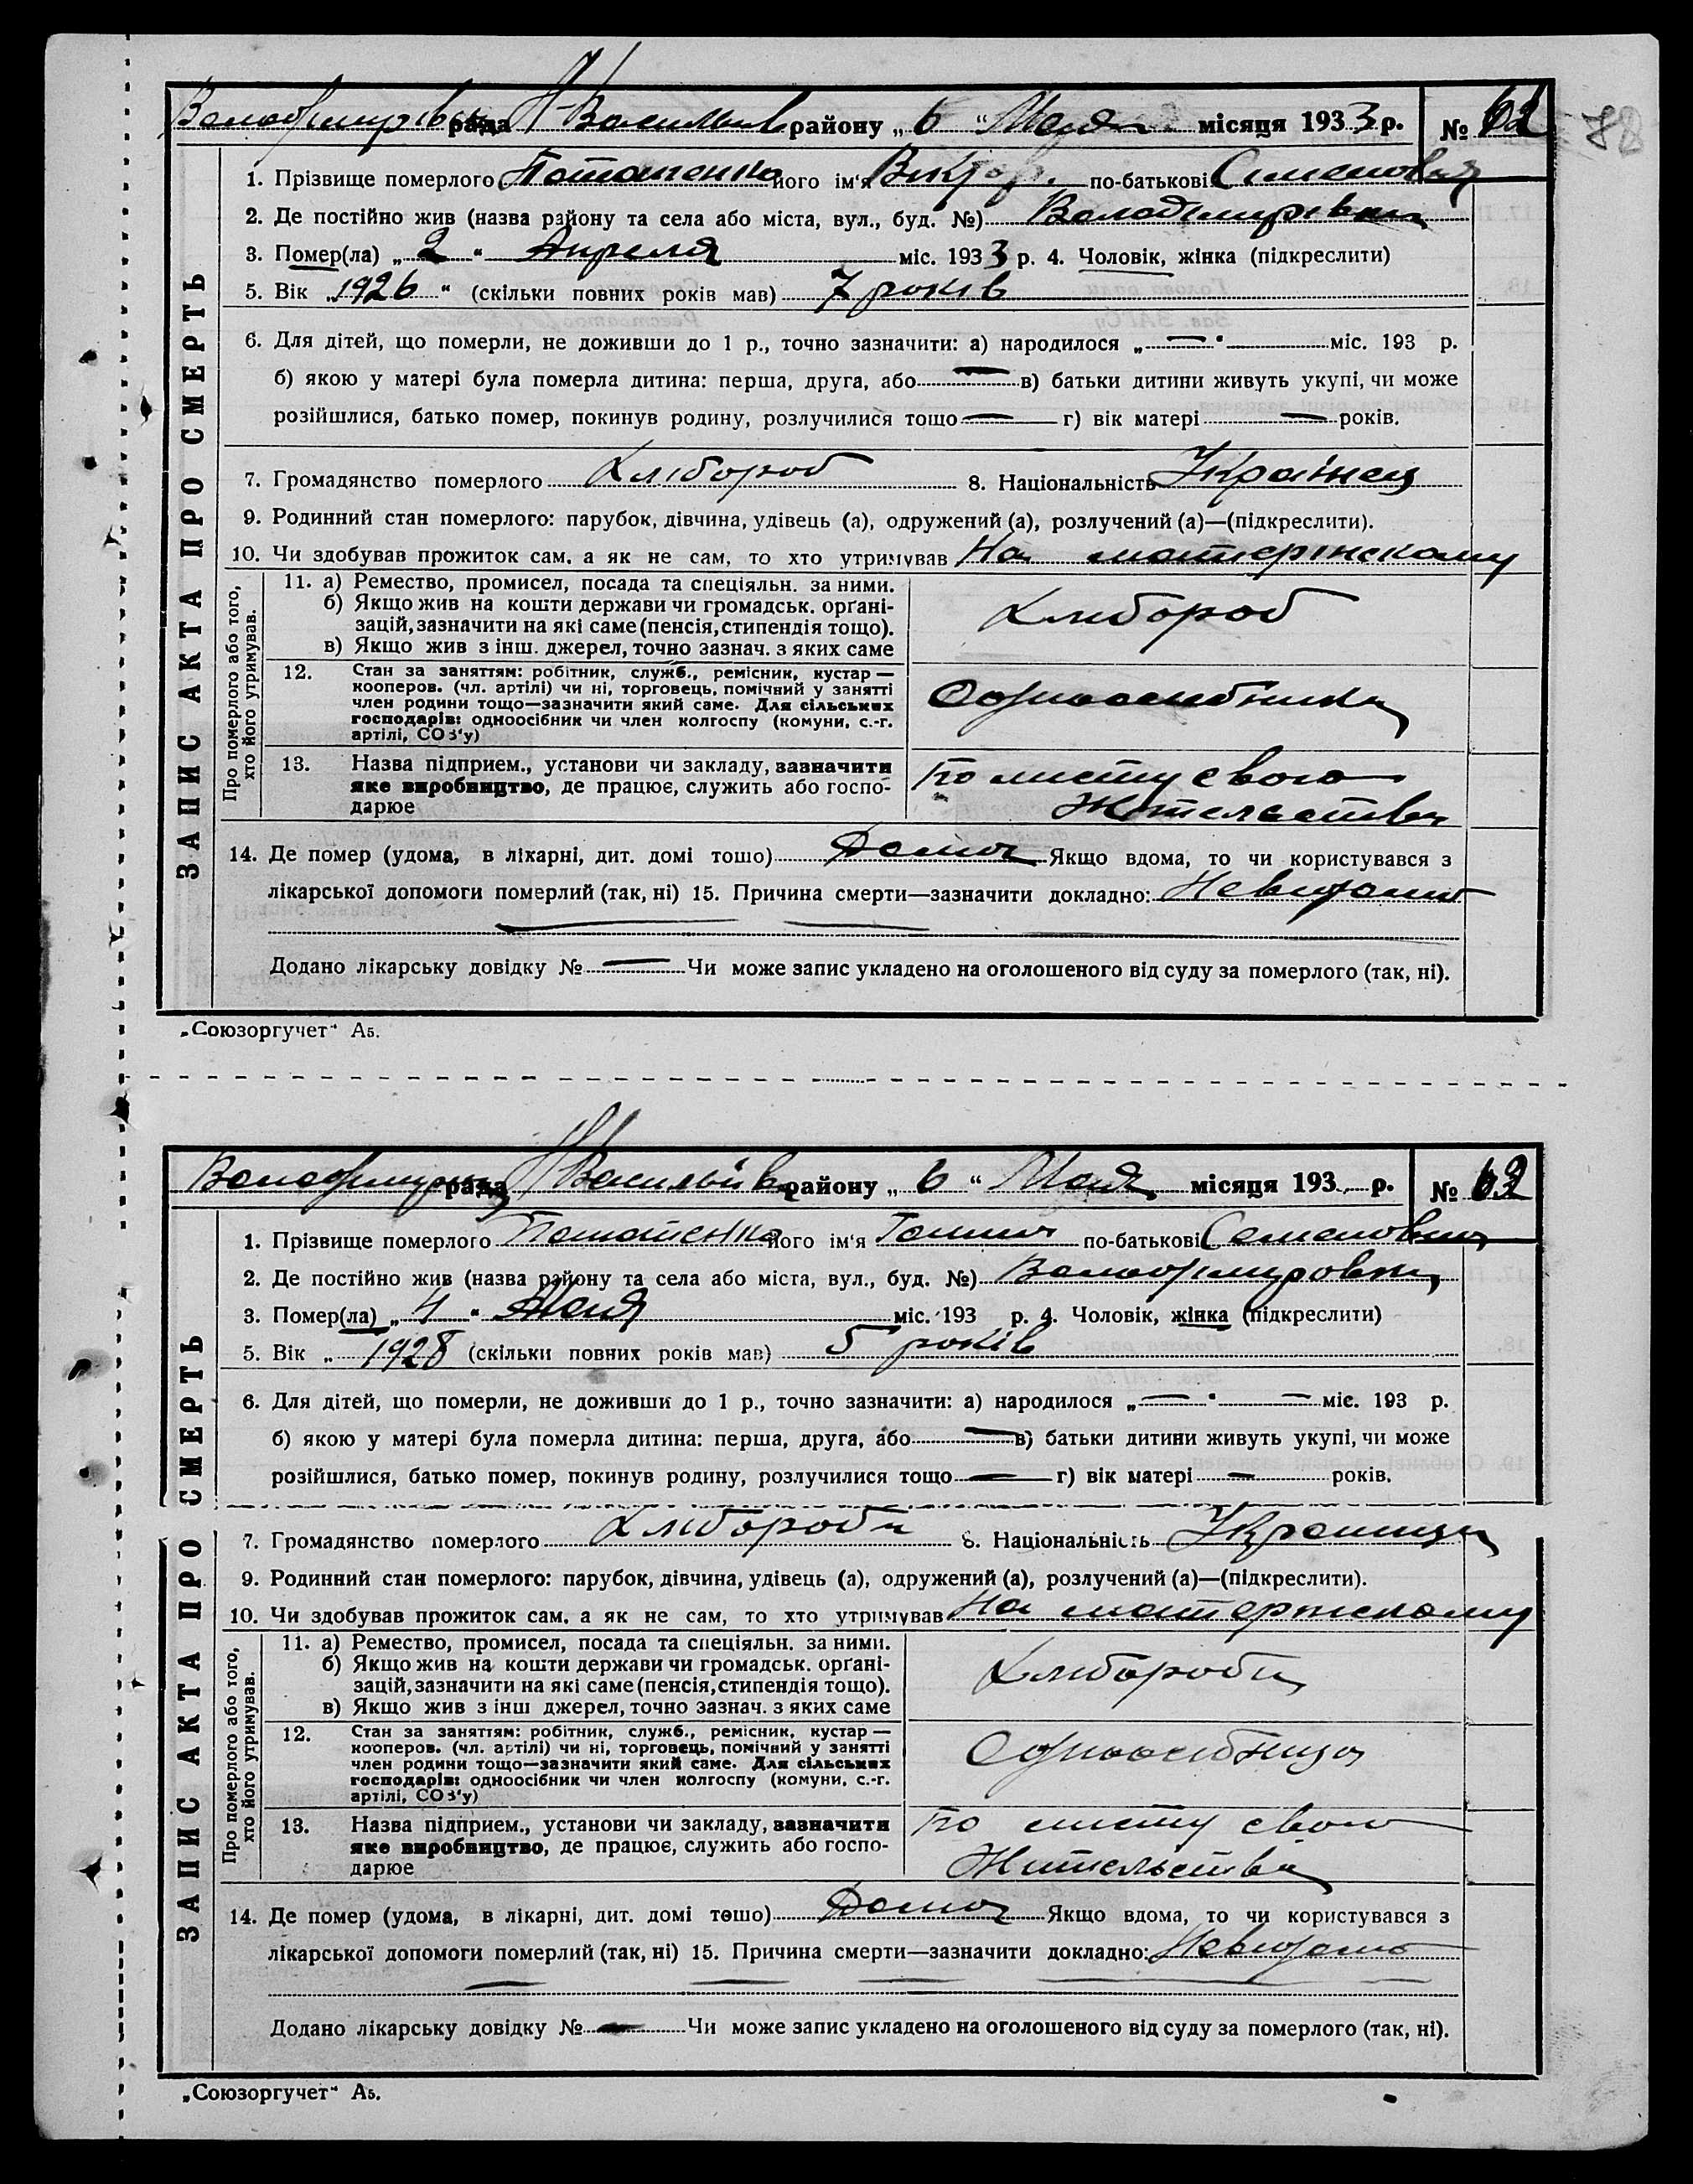 Володимирівськ рада Н-Васильів району „ 6 “ Мая місяця 1933 р. № 62
78
ЗАПИС АКТА ПРО СМЕРТЬ
1. Прізвище померлого Потопенко його ім'я Виктор. по-батькові Семенович
2. Де постійно жив (назва району та села або міста, вул., буд. №)
3. Помер(ла) „ 2 “ Апреля міс. 1933 р. 4. Чоловік, жінка (підкреслити)
5. Вік „1926“ (скільки повних років мав) 7 років
6. Для дітей, що померли, не доживши до 1 р., точно зазначити: а) народилося „ — “ міс. 193 р.
б) якою у матері була померла дитина: перша, друга, або — в) батьки дитини живуть укупі, чи може
розійшлися, батько помер, покинув родину, розлучилися тощо — г) вік матері — років.
7. Громадянство померлого Хлібороб 8. Національність Українец
9. Родинний стан померлого: парубок, дівчина, удівець (а), одружений (а), розлучений (а)—(підкреслити).
10. Чи здобував прожиток сам, а як не сам, то хто утримував На матерінскому
Про померлого або того, хто його утримував.
11. а) Ремество, промисел, посада та спеціяльн. за ними.
б) Якщо жив на кошти держави чи громадськ. орґані-
зацій, зазначити на які саме (пенсія, стипендія тощо).
в) Якщо жив з інш. джерел, точно зазнач. з яких саме
Хлібороб
12. Стан за заняттям: робітник, служб., ремісник, кустар —
кооперов. (чл. артілі) чи ні, торговець, помічний у занятті
член родини тощо—зазначити який саме. Для сільських
господарів: одноосібник чи член колгоспу (комуни, с.-г.
артілі, СОЗ'у)
13. Назва підприєм., установи чи закладу, зазначити
яке виробництво, де працює, служить або госпо-
дарює
По місту свого
Жительства
14. Де помер (удома, в лікарні, дит. домі тощо) Дома Якщо вдома, то чи користувався з
лікарської допомоги померлий (так, ні) 15. Причина смерти—зазначити докладно: Невидомо
Додано лікарську довідку № — Чи може запис укладено на оголошеного від суду за померлого (так, ні).
„Союзоргучет“ А5.
рада Н Васильів району „ 6 “ Мая місяця 193 р. № 63
ЗАПИС АКТА ПРО СМЕРТЬ
1. Прізвище померлого Потопенко його ім'я Ганна по-батькові Семеновна
2. Де постійно жив (назва району та села або міста, вул., буд. №)
3. Помер(ла) „ 4 “ Мая міс. 193 р. 4. Чоловік, жінка (підкреслити)
5. Вік „ 1928 (скільки повних років мав) 5 років
6. Для дітей, що померли, не доживши до 1 р., точно зазначити: а) народилося „ — “ — міс. 193 р.
б) якою у матері була померла дитина: перша, друга, або — в) батьки дитини живуть укупі, чи може
розійшлися, батько помер, покинув родину, розлучилися тощо — г) вік матері — років.
7. Громадянство померлого Хлібороби 8. Національність
9. Родинний стан померлого: парубок, дівчина, удівець (а), одружений (а), розлучений (а)—(підкреслити).
10. Чи здобував прожиток сам, а як не сам, то хто утримував На матерінскому
Про померлого або того, хто його утримував.
11. а) Ремество, промисел, посада та спеціяльн. за ними.
б) Якщо жив на кошти держави чи громадськ. орґані-
зацій, зазначити на які саме (пенсія, стипендія тощо).
в) Якщо жив з інш джерел, точно зазнач. з яких саме
Хлібороби
12. Стан за заняттям: робітник, служб., ремісник, кустар —
кооперов. (чл. артілі) чи ні, торговець, помічний у занятті
член родини тощо—зазначити який саме. Для сільських
господарів: одноосібник чи член колгоспу (комуни, с.-г.
артілі, СОЗ'у)
Одноосибница
13. Назва підприєм., установи чи закладу, зазначити
яке виробництво, де працює, служить або госпо-
дарює
По місту свого
Жительства
14. Де помер (удома, в лікарні, дит. домі тощо) Дома Якщо вдома, то чи користувався з
лікарської допомоги померлий (так, ні) 15. Причина смерти—зазначити докладно: Невидомо
Додано лікарську довідку № — Чи може запис укладено на оголошеного від суду за померлого (так, ні).
„Союзоргучет“ А5.